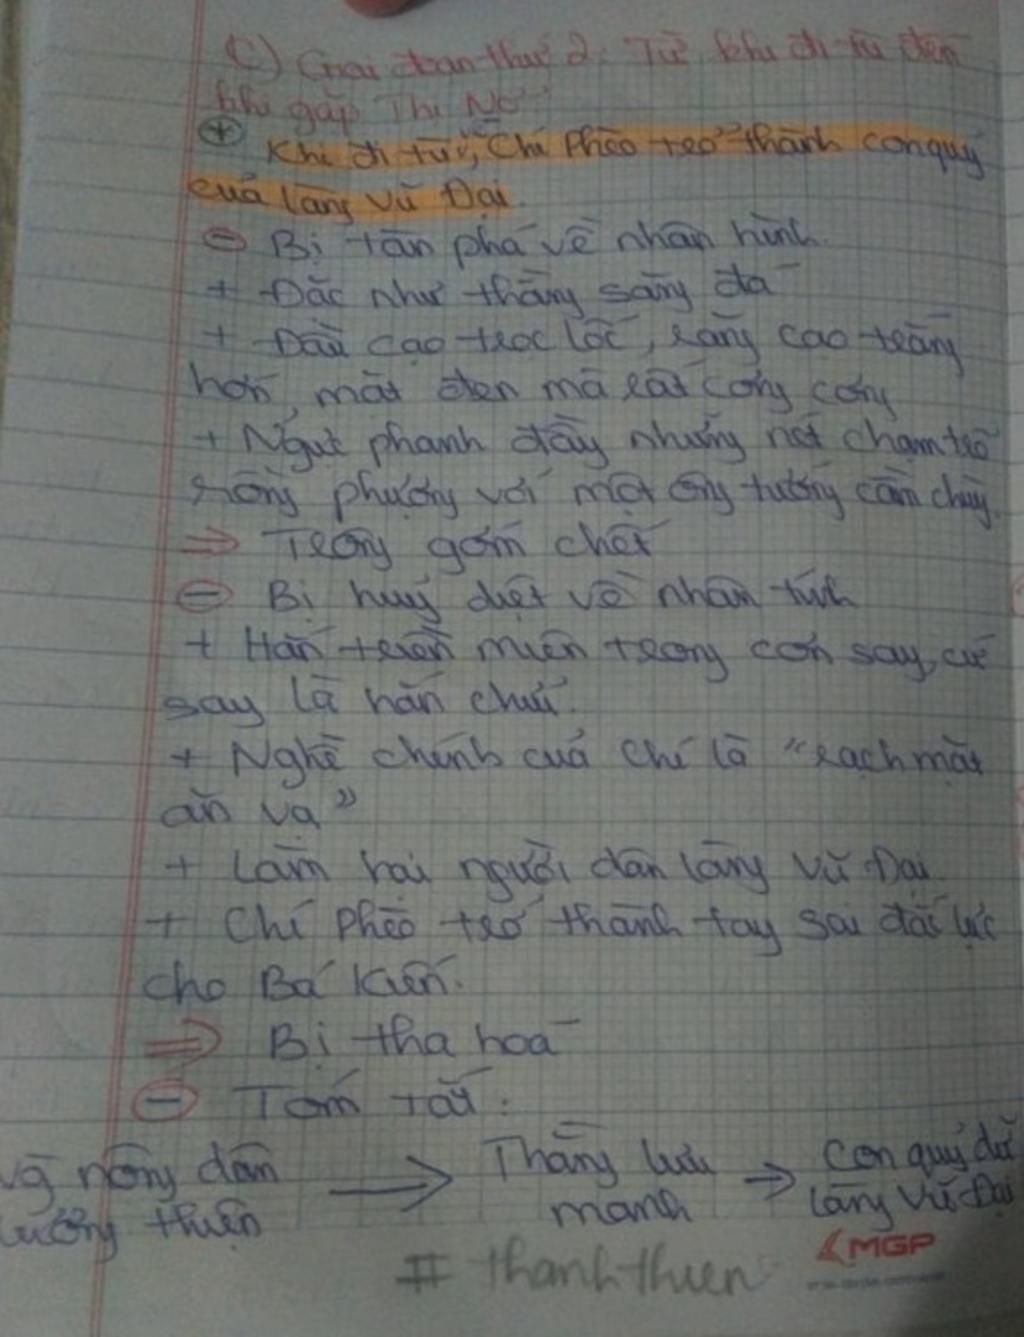 C) Giai đoạn thứ 2: Từ khi đi tù đến
khi gặp Thị Nở
+ Khi đi tù, Chí Phèo trở thành con quỷ
của làng Vũ Đại.
- Bị tàn phá về nhân hình
+ Đặc như thằng săng đá
+ Đầu cạo trọc lốc, răng cạo trắng
hớn, mặt đen mà rất cơng cơng
+ Ngực phanh đầy những nét chạm trổ
rồng phượng với một ông tướng cầm chùy.
⇒ Trông gớm chết
- Bị huỷ diệt về nhân tính
+ Hắn triền miên trong cơn say, cứ
say là hắn chửi.
+ Nghề chính của Chí là "rạch mặt
ăn vạ"
+ Làm hại người dân làng Vũ Đại
+ Chí Phèo trở thành tay sai đắc lực
cho Bá Kiến.
⇒ Bị tha hoá
- Tóm tắt:
nông dân → Thằng lưu → Con quỷ dữ
lương thiện manh làng Vũ Đại
MGP
# thanhthien